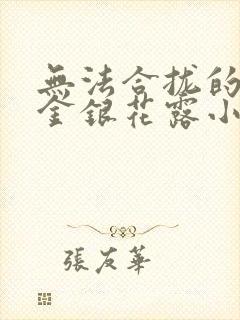 無法合拢的
金銀花露小
張友華